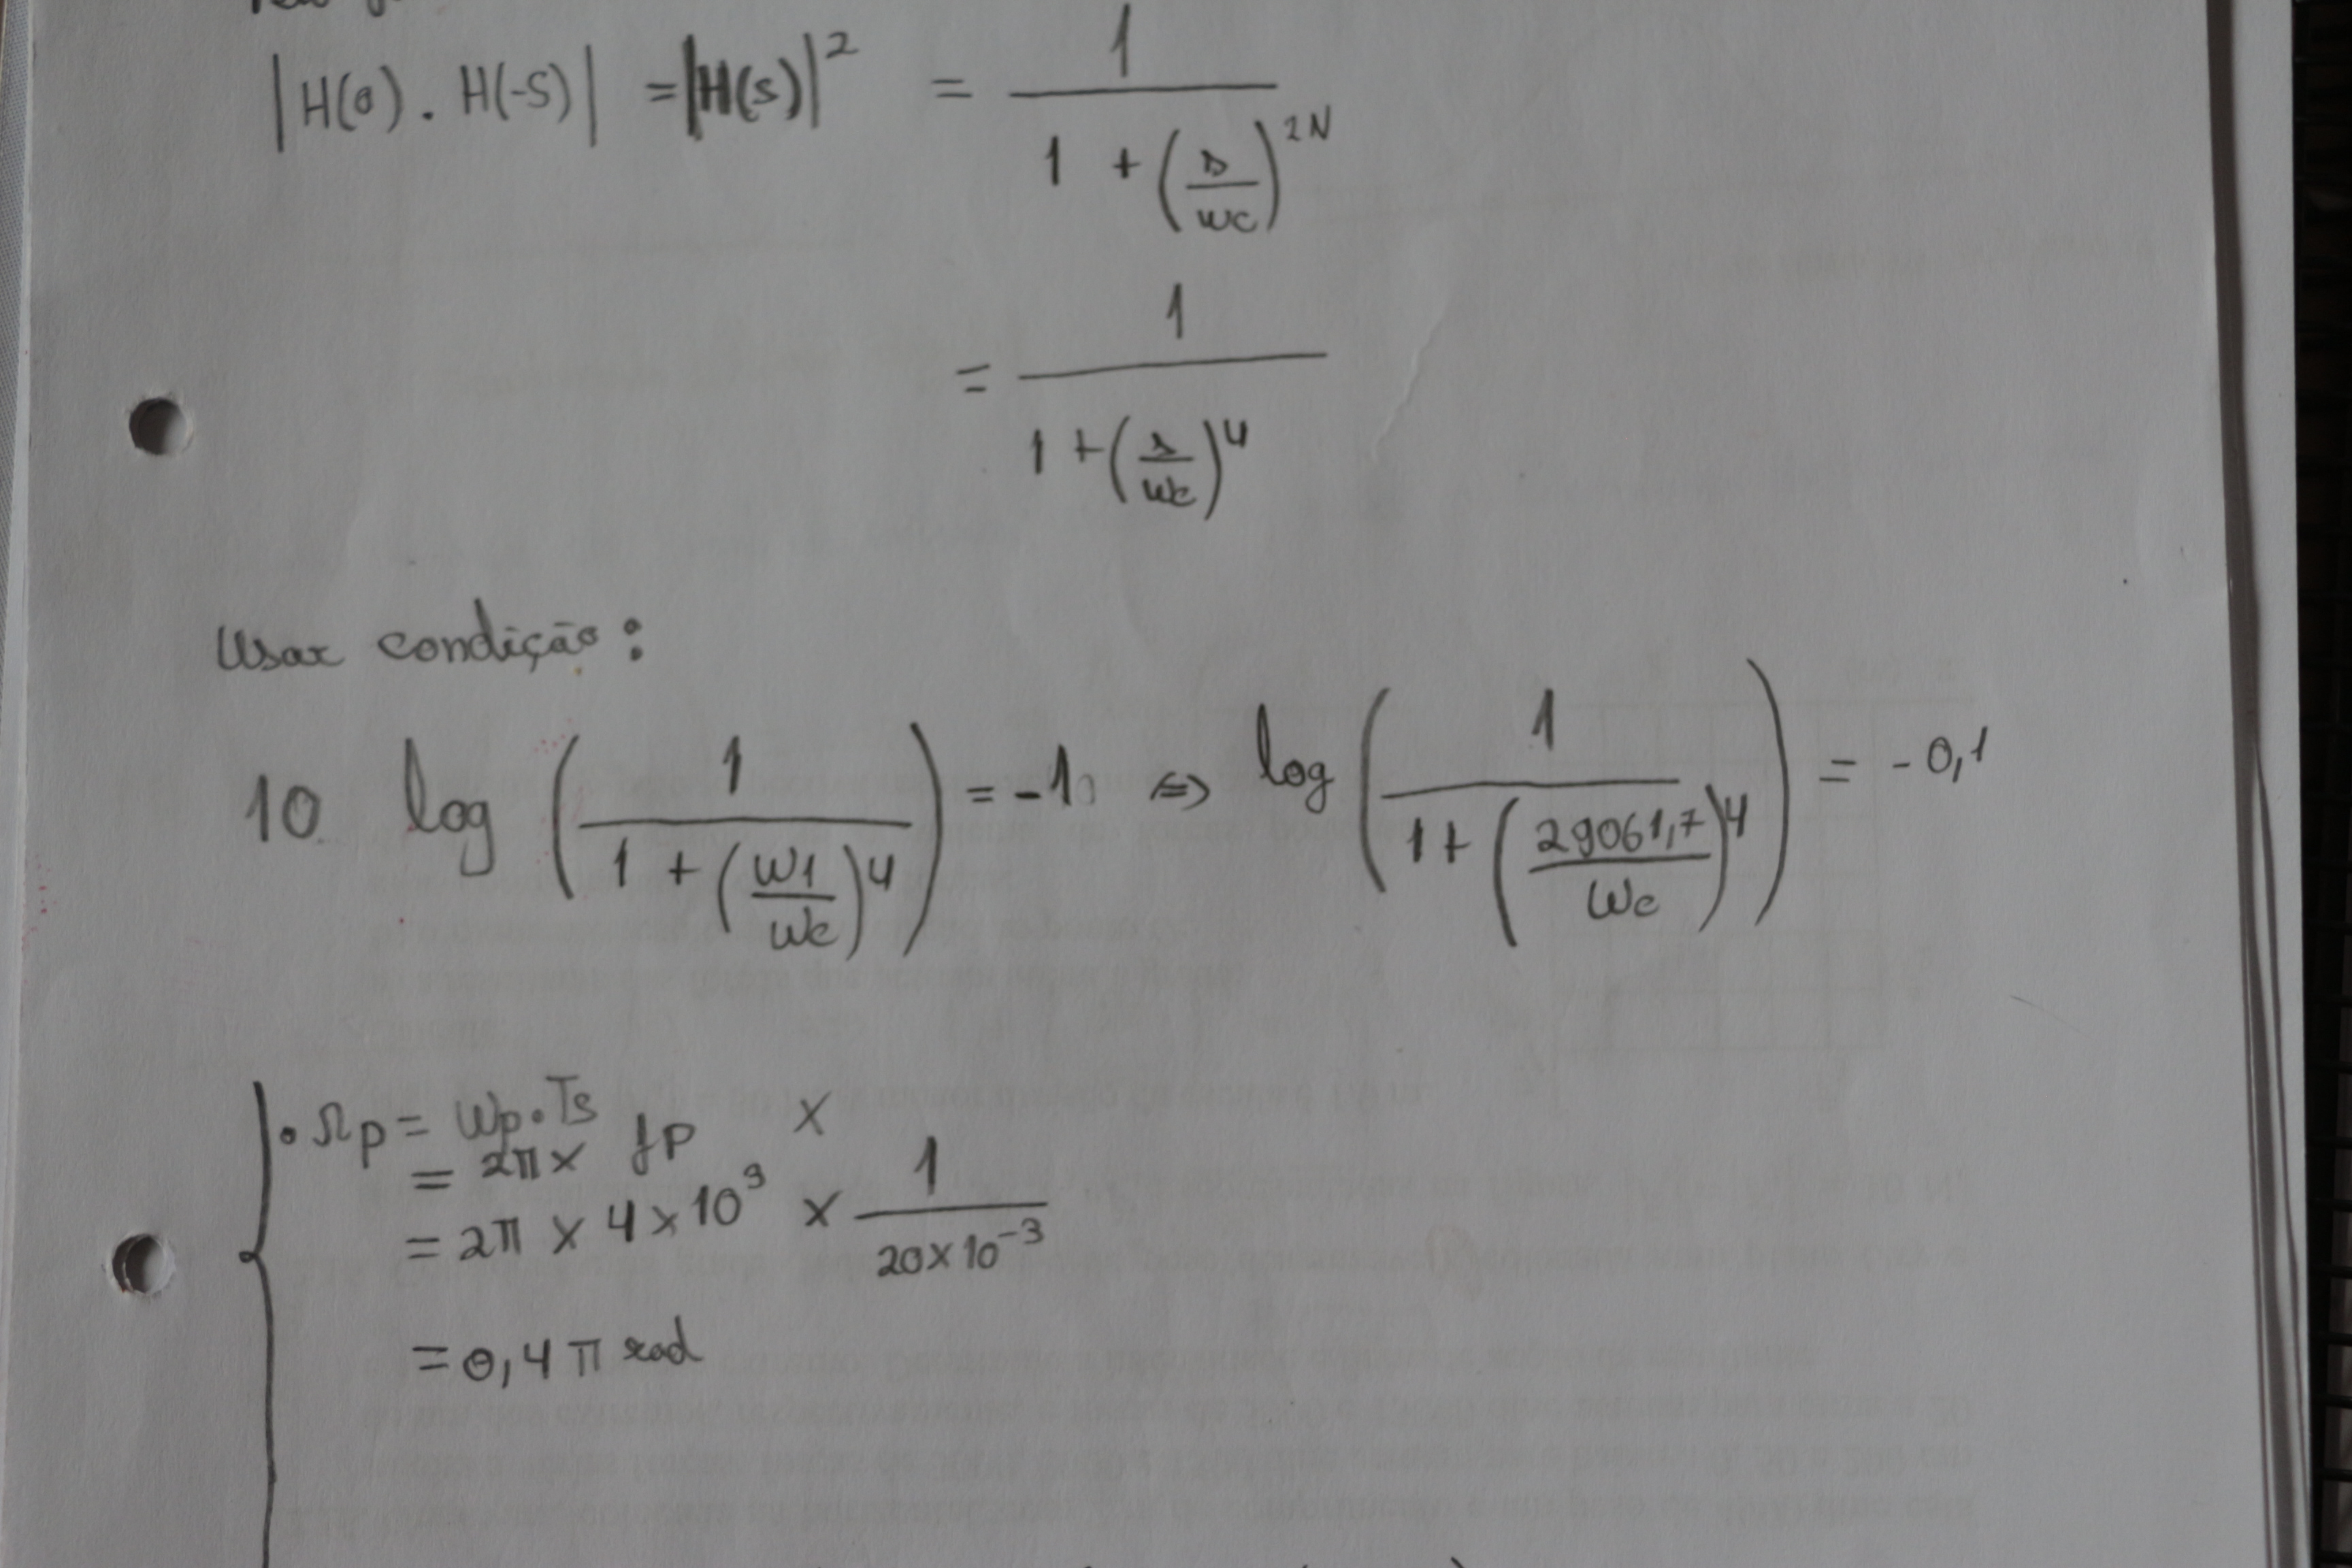 |H(s) . H(-S)| = |H(s)|² = 1 / (1 + (s/wc)^2N)
= 1 / (1 + (s/wc)^4)
Usar condição:
10 log (1 / (1 + (w1/wc)^4)) = -1 ⇔ log (1 / (1 + (29061,7/wc)^4)) = -0,1
• Ωp = Wp • Ts
= 2π x fp x
= 2π x 4 x 10³ x 1 / (20 x 10⁻³)
= 0,4 π rad